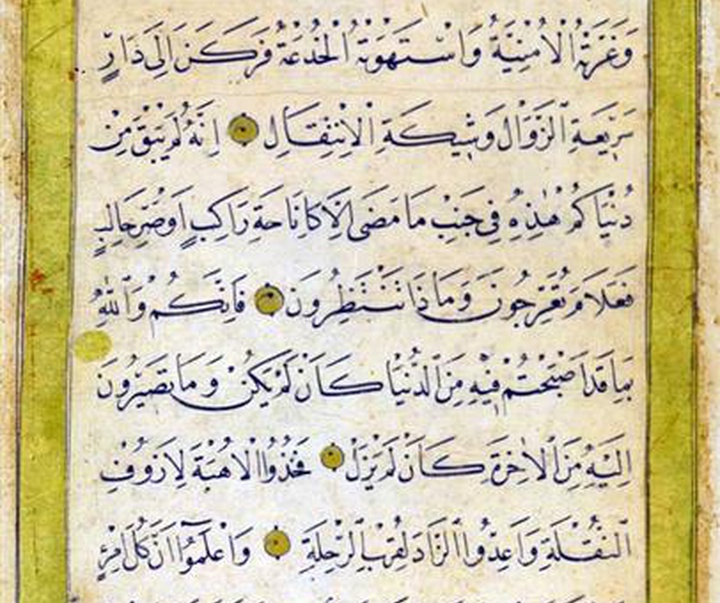 وَغَرَّتْهُ الْاُمْنِيَّةُ وَاسْتَهْوَتْهُ الْخُدْعَةُ فَرَكَنَ اِلَى دَارٍ
سَرِيعَةِ الزَّوَالِ وَشِيكَةِ الْاِنْتِقَالِ اِنَّهُ لَمْ يَبْقَ مِنْ
دُنْيَاكُمْ هٰذِهِ فِي جَنْبِ مَا مَضَى اِلَّا كَاِنَاخَةِ رَاكِبٍ اَوْ صَرِّ حَالِبٍ
فَعَلَامَ تُعَرِّجُونَ وَمَاذَا تَنْتَظِرُونَ فَاِنَّكُمْ وَاللّٰهِ
بِمَا قَدْ اَصْبَحْتُمْ فِيهِ مِنَ الدُّنْيَا كَاَنْ لَمْ يَكُنْ وَمَا تَصِيرُونَ
اِلَيْهِ مِنَ الْاٰخِرَةِ كَاَنْ لَمْ يَزَلْ فَخُذُوا الْاُهْبَةَ لِاَزُوفِ
النُّقْلَةِ وَاَعِدُّوا الزَّادَ لِقُرْبِ الرِّحْلَةِ وَاعْلَمُوا اَنَّ كُلَّ امْرِئٍ